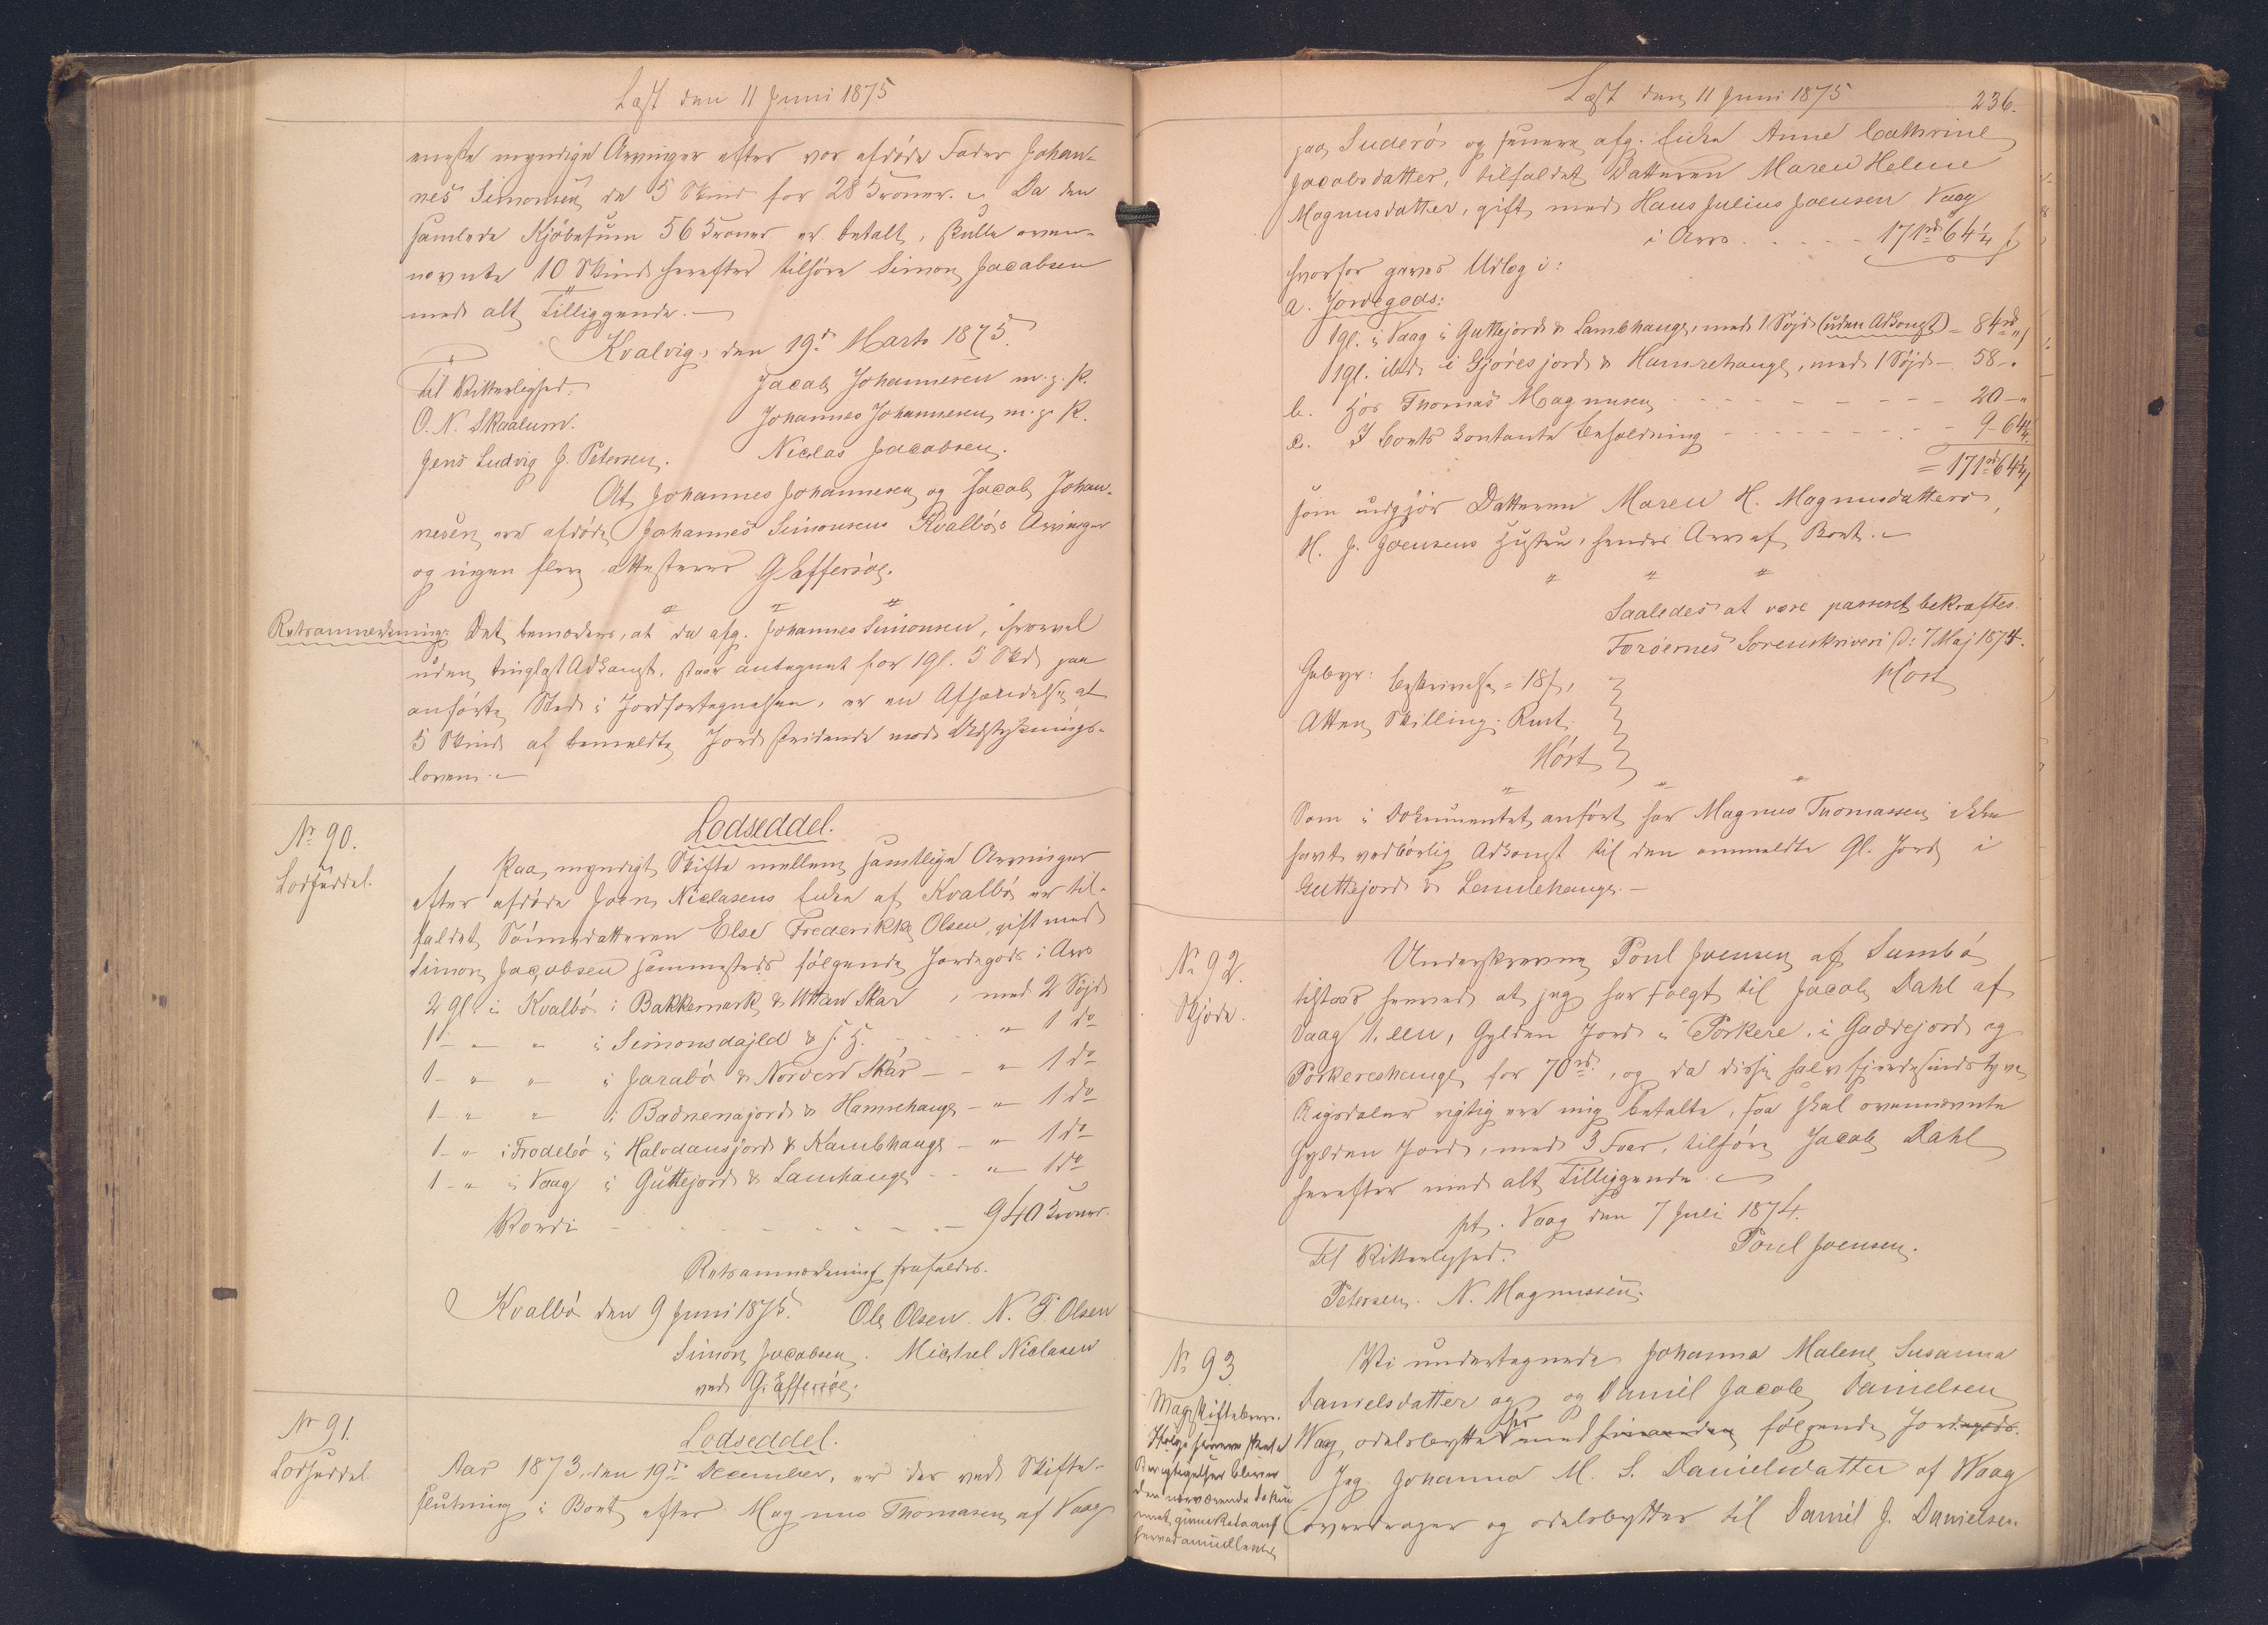 Læst den 11 Juni 1875
eneste myndige Arvinger efter vor afdøde Fader Johan-
nes Simonsen de 5 Skind for 28 Kroner. Da den
samlede Kjöbesum 56 Kroner er betalt, skulle oven-
nævnte 10 Skind herefter tilhøre Simon Jacobsen
med alt Tilliggende.
Kvalvig, den 19de Marts 1875.
Til Vitterlighed:
Jacob Johannesen m. f. P.
O. N. Skaalum.
Johannes Johannesen, m. f. P.
Jens Ludvig J. Petersen.
Niclas Jacobsen.
At Johannes Johannesen og Jacob Johan-
nesen ere afdøde Johannes Simonsens Kvalbø's Arvinger
og ingen flere attesterer G Effersøe.
Retsanmærkning: Det bemærkes, at da afg. Johannes Simonsen, hvorvel
uden tinglæst Adkomst, staar antegnet for 1gl. 5 Skd paa
anførte Sted i Jordfortegnelsen, er en Afhændelse af
5 Skind af bemeldte Jord stridende mod Udstyknings-
loven.
No 90.
Lodseddel.
Lodseddel.
Paa myndigt Skifte mellem samtlige Arvinger
efter afdøde Joen Niclasens Enke af Kvalbø er til-
faldet Sønnedatteren Else Frederikke Olsen, gift med
Simon Jacobsen sammesteds følgende Jordegods i Arv
2 gl. i Kvalbø i Bakkemark & Uttan Skar, med 2 Søjd
1 - " " i Simonsdajld & f. H. - " 1 do
1 - " " i Jarabø & Norderd Skár - - " 1 do
1 - " " i Badnenajord & Hamrehauge - " 1 do
1 - " i Frodebø i Halvdansjord & Kambhauge - " 1 do
1 - " i Vaag i Guttejord & Lamhauge - - " 1 do
Værdi - - - - 940 Kroner.
Retsanmærkning frafaldes.
Kvalbø den 9 Juni 1875. Ole Olsen. N. P. Olsen
Simon Jacobsen. Michel Niclasen
ved G. Effersøe.
No 91.
Lodseddel
Lodseddel.
Aar 1873, den 19de December, er der ved Skifte-
slutning i Boet efter Magnus Thomasen af Vaag
Læst den 11 Juni 1875
236.
paa Suderø og senere afg. Enke Anne Cathrine
Jacobsdatter, tilfaldet Datteren Maren Helene
Magnusdatter, gift med Hans Julius Joensen Vaag
i Arv . . . . 171rd 64¼ ß
hvorfor gaves Udlæg i:
a. Jordegods:
1gl. i Vaag i Guttejord & Lambhauge, med 1 Søjd (uden Adkomst) = 84rd "
1gl. ibd. i Gjøresjord & Hamrehauge, med 1 Søjd - 58 - "
b. Hos Thomas Magnusen - - - - 20 - "
c. I Boets kontante Beholdning - - - - 9 - 64¼
= 171rd 64¼
som udgjør Datteren Maren H. Magnusdatters,
H. J. Joensens Hustru, hendes Arv af Boet.
Saaledes at være passeret bekræftes.
Færøernes Sorenskriveri d: 7 Maj 1874.
Høst
Gebyr: Beskrivelse = 18 ß,
Atten Skilling Rmt.
Høst
Som i Dokumentet anført har Magnus Thomassen ikke
havt vedbørlig Adkomst til den anmeldte Gl. Jord i
Guttejord & Lambehauge. -
No 92.
Skjøde.
Underskrevne Poul Joensen af Sumbø
tilstaar herved at jeg har solgt til Jacob Dahl af
Vaag 1, een, Gylden Jord i Porkere, i Gaddejord og
Porkereshauge for 70rd, og da disse halvfjerdesindstyve
Rigsdaler rigtig ere mig betalte, saa skal ovennævnte
Gylden Jord, med 3 Faar, tilhøre Jacob Dahl
herefter med alt Tilliggende.
pt. Vaag den 7 Juli 1874.
Til Vitterlighed:
Poul Joensen.
Petersen. N. Magnussen.
No 93
Mageskiftebrev.
Ifølge senere skete
Berigtigelser bliver
den nærværende Doku
ment
herved annulleret
Vi undertegnede Johanna Malene Susanna
Danielsdatter og og Daniel Jacob Danielsen
Waag, odelsbytte med hinanden følgende Jordegods.
Jeg Johanna M. S. Danielsdatter af Waag
overdrager og odelsbytter til Daniel J. Danielsen